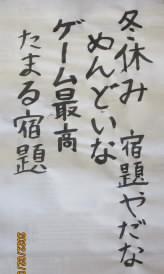 冬休み 宿題やだな
めんどいな
ゲーム最高
たまる宿題